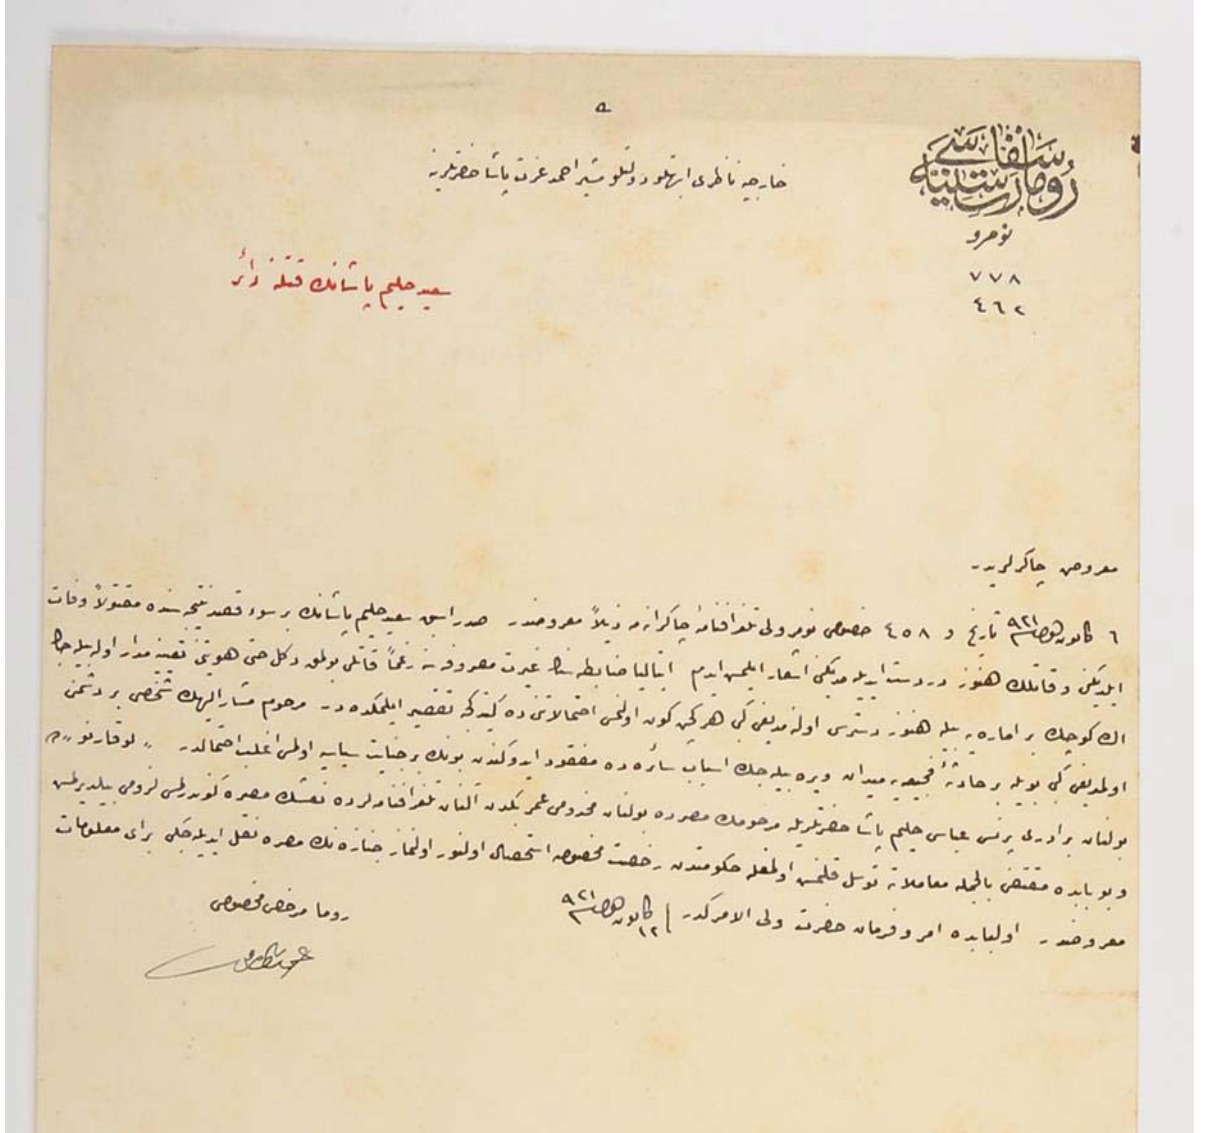 روما سفارت سنیه‌سی
نومرو
٧٧٨
٤٦٢
خارجیه ناظری ابهتلو دولتلو مشیر احمد عزت پاشا حضرتلرینه
سعید حلیم پاشانك قتلنه دائر
معروض چاكرلریدر
٦ كانون ٩٢١ تاریخ و ٤٥٨ خصوصی نومرولی تلغرافنامهٔ چاكرانه‌مه ذیلاً معروضدر صدر اسبق سعید حلیم پاشانك بر سوء قصد نتیجه‌سنده مقتولاً وفات
ایلدیكنی و قاتلك هنوز دردست ایدیله‌مدیكنی اشعار ایلمش ایدم ایتالیا ضابطه‌سنك غیرت معروفه‌سنه رغماً قاتلی بولمق دكل حتی هویتنی تعیینه مدار اوله‌بیله‌جك
اك كوچك بر اماره‌یه بیله هنوز دسترس اوله‌مدیغی كبی هر كچن كون اولمش احتمالاتنی ده كیتدكجه تقصیر ایلمكده‌در مرحوم مشارالیهك شخصی بر دشمنی
اولمدیغی كبی بویله بر حادثهٔ فجیعه‌یه میدان ویره‌بیله‌جك اسباب سائره ده مفقود ایدوكندن بونك بر جنایت سیاسیه اولمسی اغلب احتمالدر لوقارنوده
بولنان برادری پرنس عباس حلیم پاشا حضرتلریله مرحومك مصرده بولنان مخدومی عمر بكدن آلنان تلغرافنامه‌لرده نعشك مصره كوندرلمسی لزومی بیلدیرلمش
و بو بابده مقتضی بالجمله معاملاته توسل قلنمش اولمغله حكومتدن رخصت مخصوصه استحصال اولنور اولنماز جنازه‌نك مصره نقل ایدیله‌جكی برای معلومات
معروضدر اولبابده امر و فرمان حضرت ولی الامركدر
١٢ كانون ٩٢١
روما مرخص مخصوصی